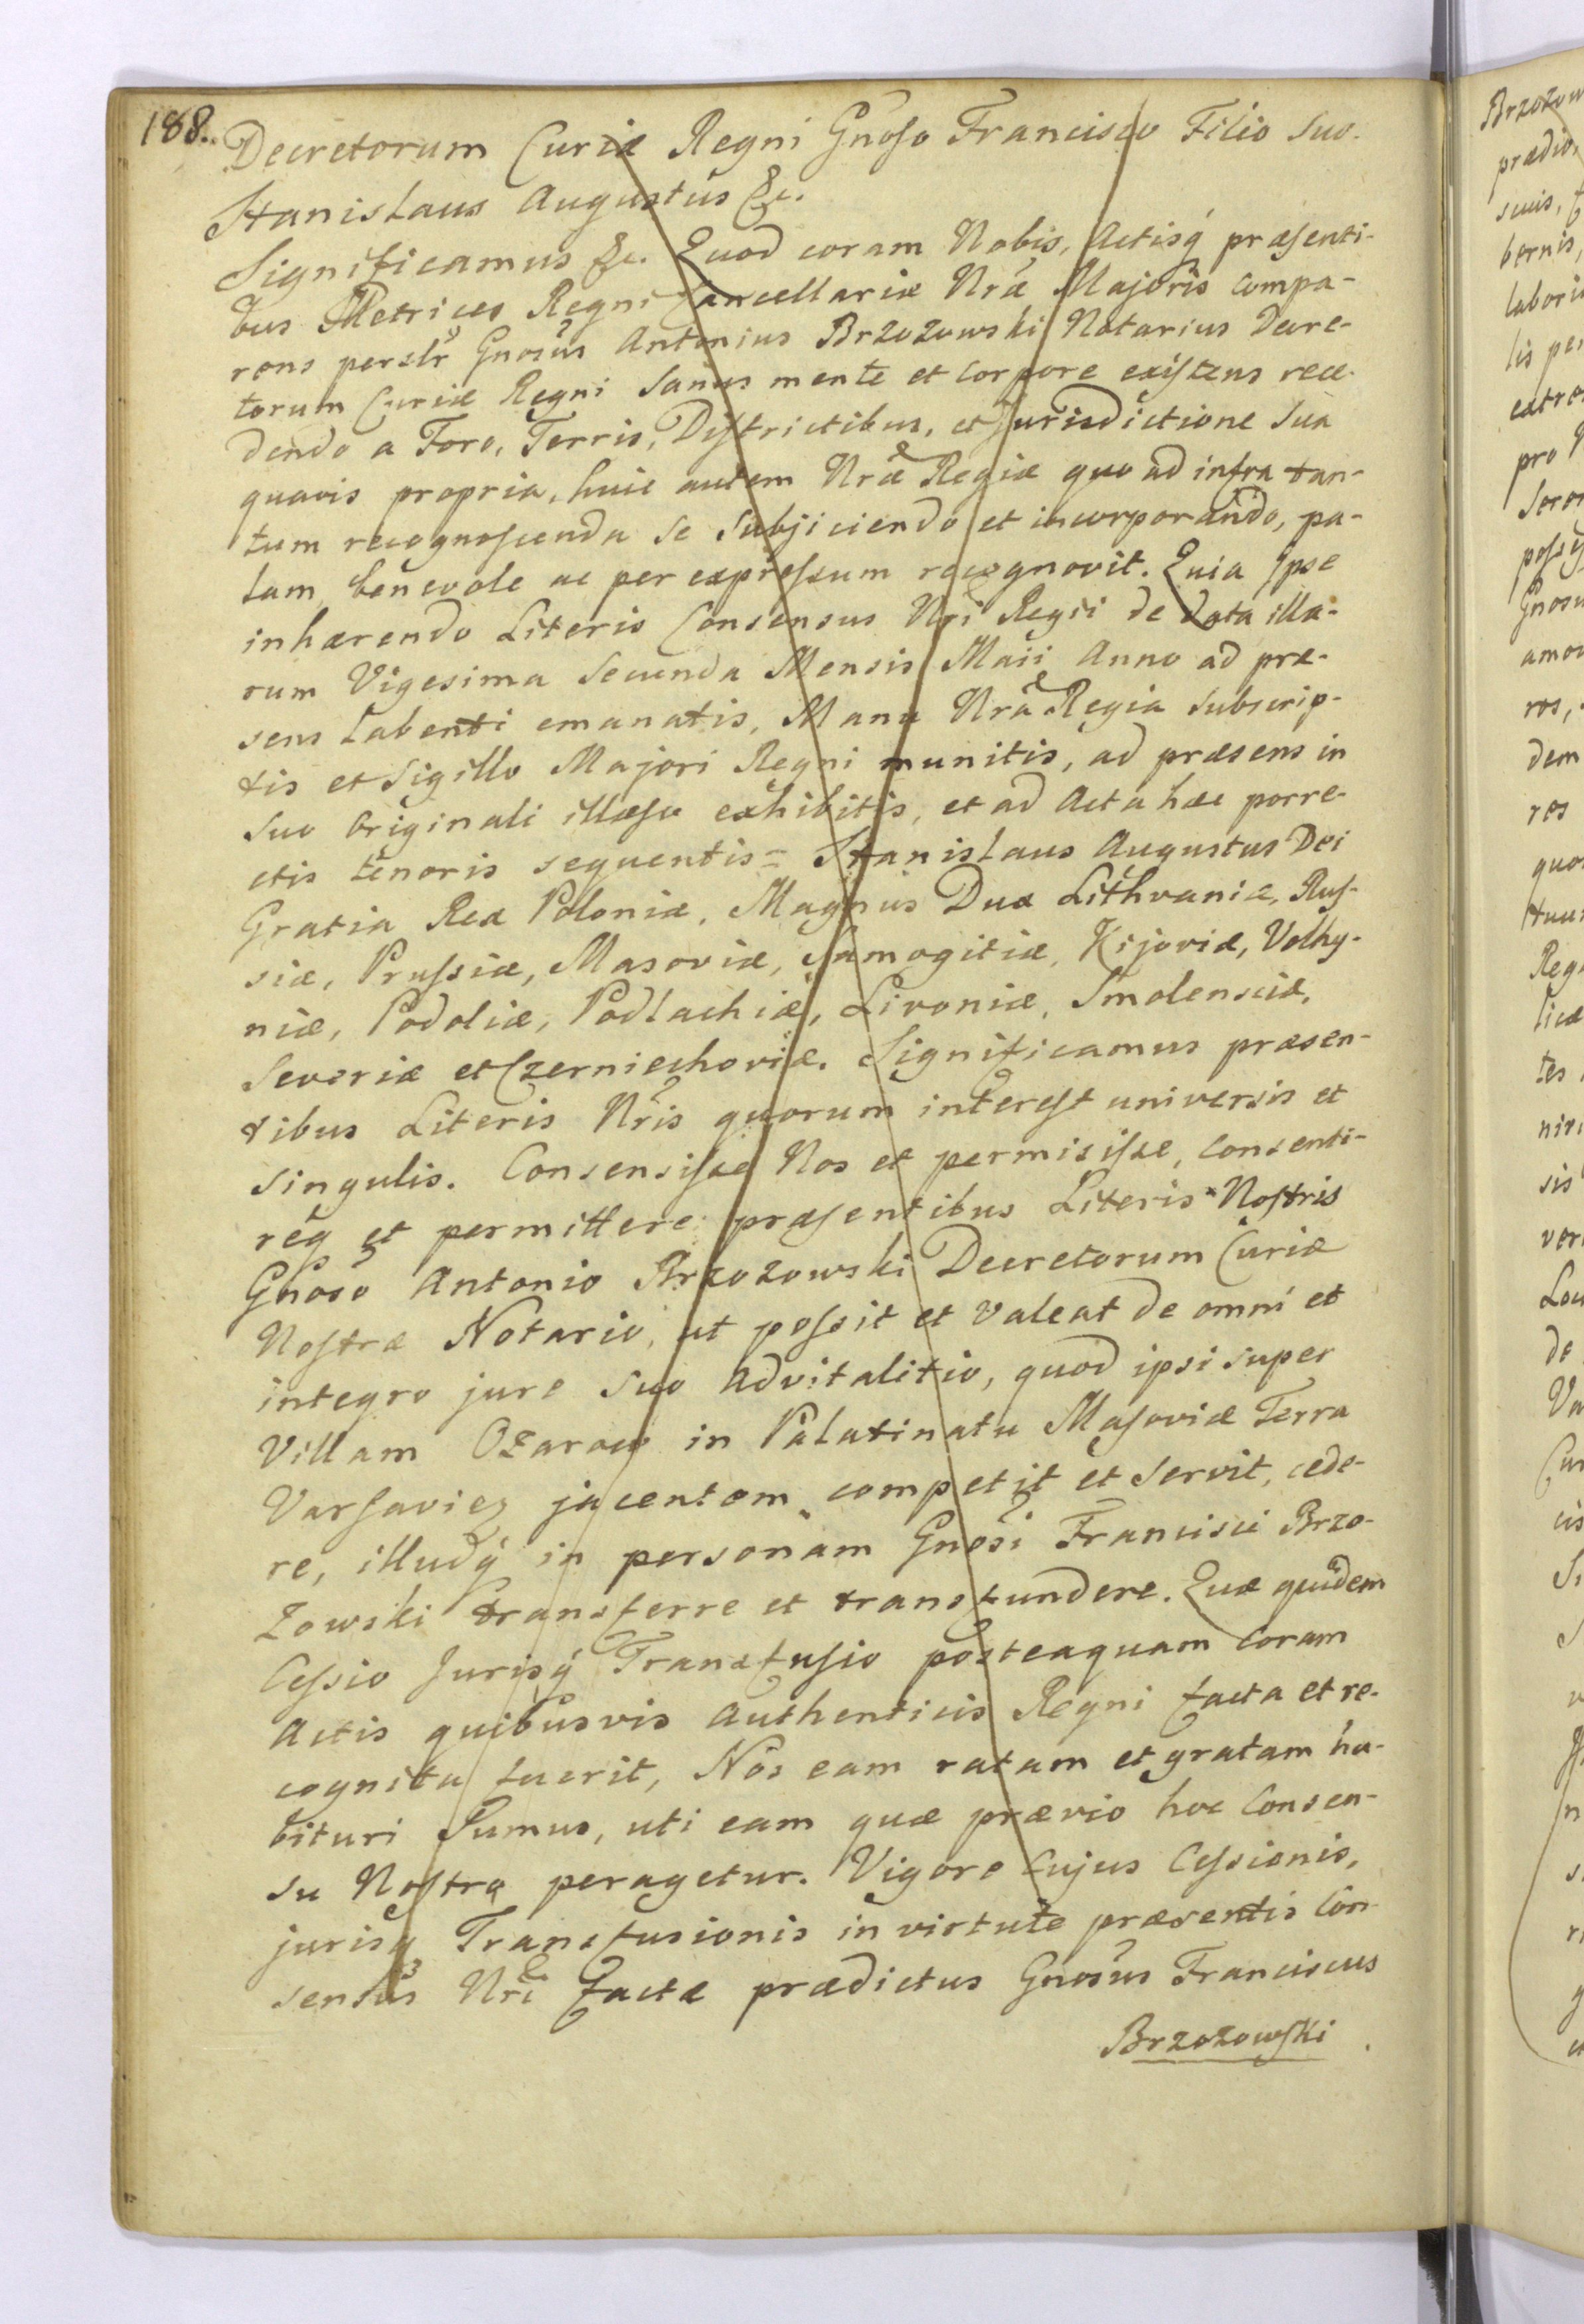 188.
Decretorum Curiæ Regni Gnoso Francisco Filio Suo.
Stanislaus Augustus &c.
Significamus &c. Quod coram Nobis, Actisq́ præsenti-
bus Metrices Regni Cancellariæ Nræ Majoris compa-
rens personlr Gnosus Antonius Brzozowski Notarius Decre-
torum Curiæ Regni Sanus mente et corpore existens rece-
dendo a Foro, Terris, Districtibus, et Jurisdictione Sua
quavis propria, huic autem Nræ Regiæ quo ad infra tan-
tum recognoscenda se Subjiciendo et incorporando, pa-
lam, benevole ac per expressum recognovit. Quia Ipse
inhærendo Literis Consensus Nri Regii de data illa-
rum Vigesima Secunda Mensis Maii Anno ad præ-
sens labenti emanatis, Manu Nra Regia Subscrip-
tis et Sigillo Majori Regni munitis, ad præsens in
Suo Originali illæso exhibitis, et ad Acta hæc porre-
ctis tenoris sequentis = Stanislaus Augustus Dei
Gratia Rex Poloniæ, Magnus Dux Lithvaniæ, Rus-
siæ, Prussiæ, Masoviæ, Samogitiæ, Kijoviæ, Volhy-
niæ, Podoliæ, Podlachiæ, Livoniæ, Smolensciæ,
Severiæ et Czerniechoviæ. Significamus præsen-
tibus Literis Nris quorum interest universis et
singulis. Consensisse Nos et permisisse, consenti-
req́ et permittere præsentibus Literis Nostris
Gnoso Antonio Brzozowski Decretorum Curiæ
Nostræ Notario, ut possit et valeat de omni et
integro jure Suo Advitalitio, quod ipsi super
Villam Ozarow in Palatinatu Masoviæ Terra
Varsavien jacentem competit et Servit, cede-
re, illudq́ in personam Gnosi Francisci Brzo-
zowski transferre et transfundere. Quæ quidem
Cessio Jurisq́ Transfusio posteaquam Coram
Actis quibusvis Authenticis Regni facta et re-
cognita fuerit, Nos eam ratam et gratam ha-
bituri Sumus, uti eam quæ prævio hoc Consen-
su Nostro peragetur. Vigore Cujus Cessionis,
jurisq́ Transfusionis in virtute præsentis Con-
sensus Nri factæ prædictus Gnosus Franciscus
Brzozowski